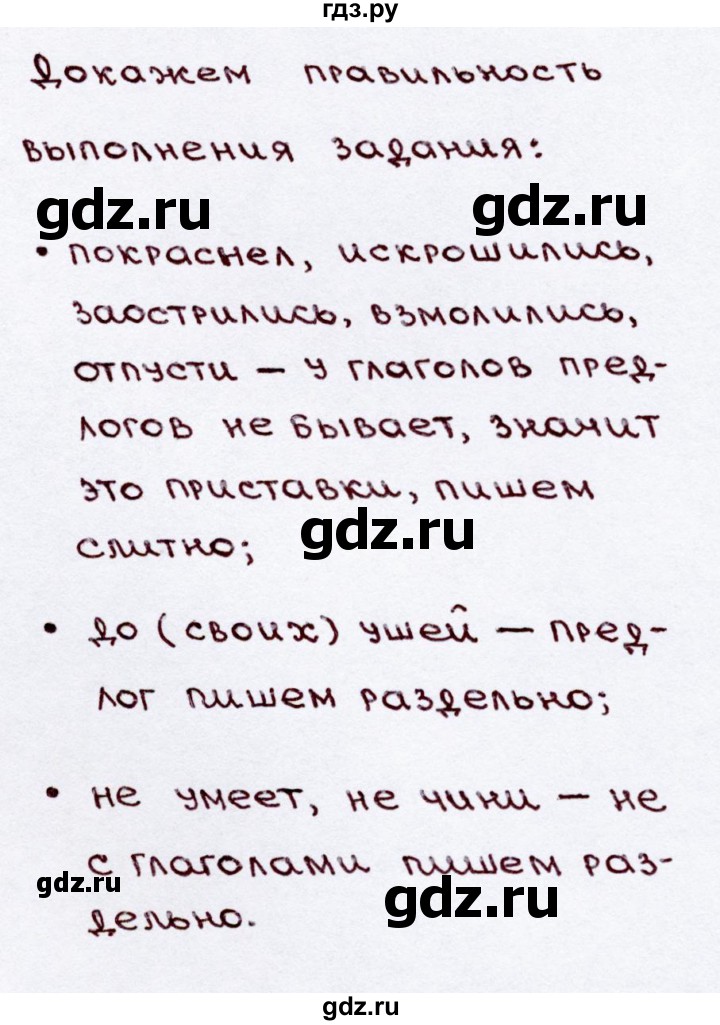 гдз.ру
Докажем правильность
выполнения задания:
gdz.ru gdz.ru
• покраснел, искрошились,
заострились, взмолились,
отпусти – у глаголов пред-
логов не бывает, значит
это приставки, пишем
слитно;
gdz.ru
• до (своих) ушей – пред-
лог пишем раздельно;
• не умеет, не чини – не
с глаголами пишем раз-
gdz.ru
дельно.
gdz.ru
gdz.ru